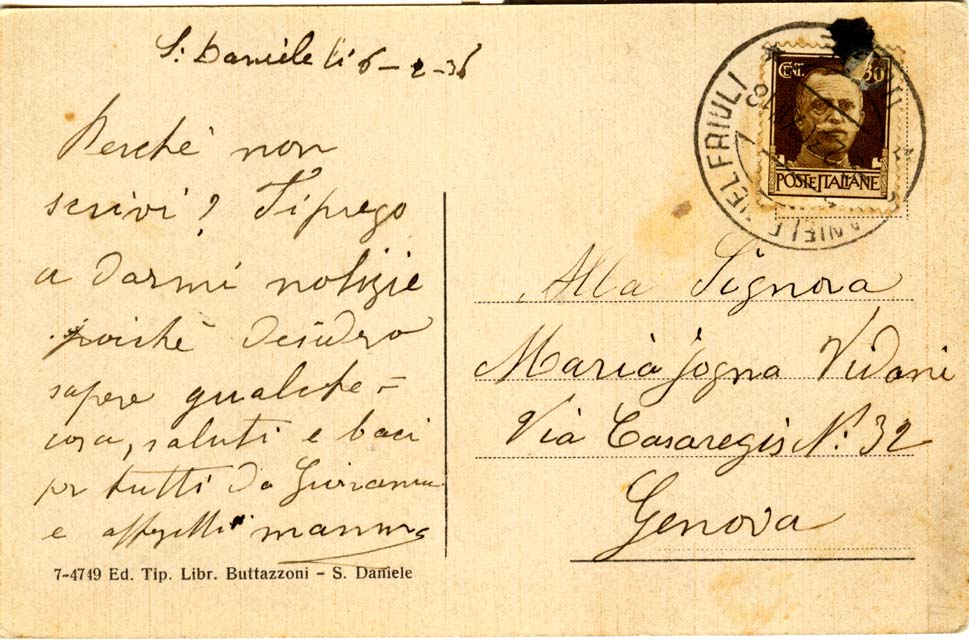 S. Daniele li 6-2-36
Perchè non
scrivi? Ti prego
a darmi notizie
poichè desidero
sapere qualche=
cosa, saluti e baci
per tutti da Giovanni
e affetti mamma
7-4749 Ed. Tip. Libr. Buttazzoni - S. Daniele
CENT. 30
POSTE ITALIANE
DANIELE DEL FRIULI
Alla Signora
Maria Jogna Vidoni
Via Casaregis N.° 32
Genova